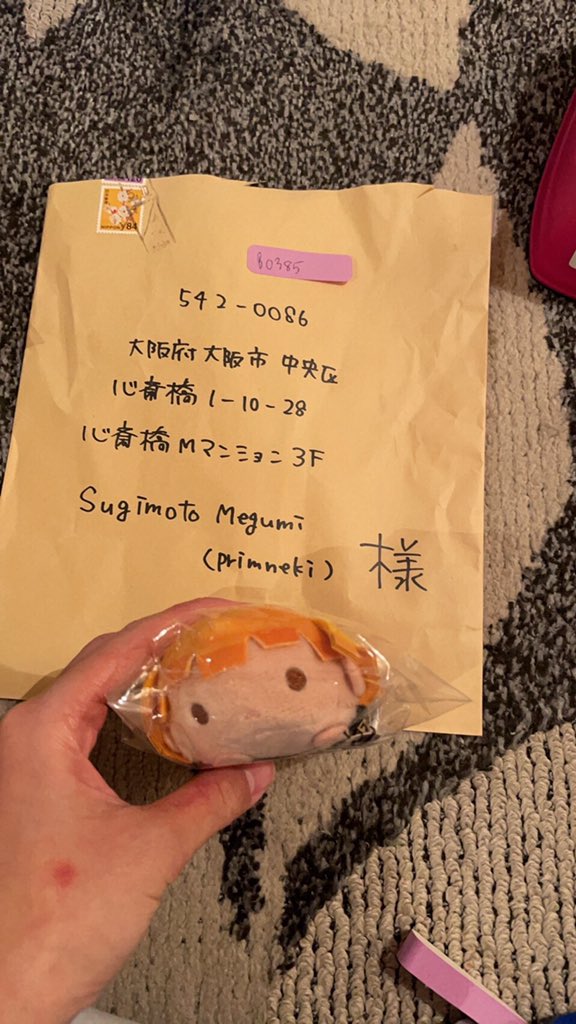 NIPPON ¥84
B0385
542-0086
大阪府大阪市 中央区
心斎橋 1-10-28
心斎橋Mマンション 3F
Sugimoto Megumi
(primneki) 様